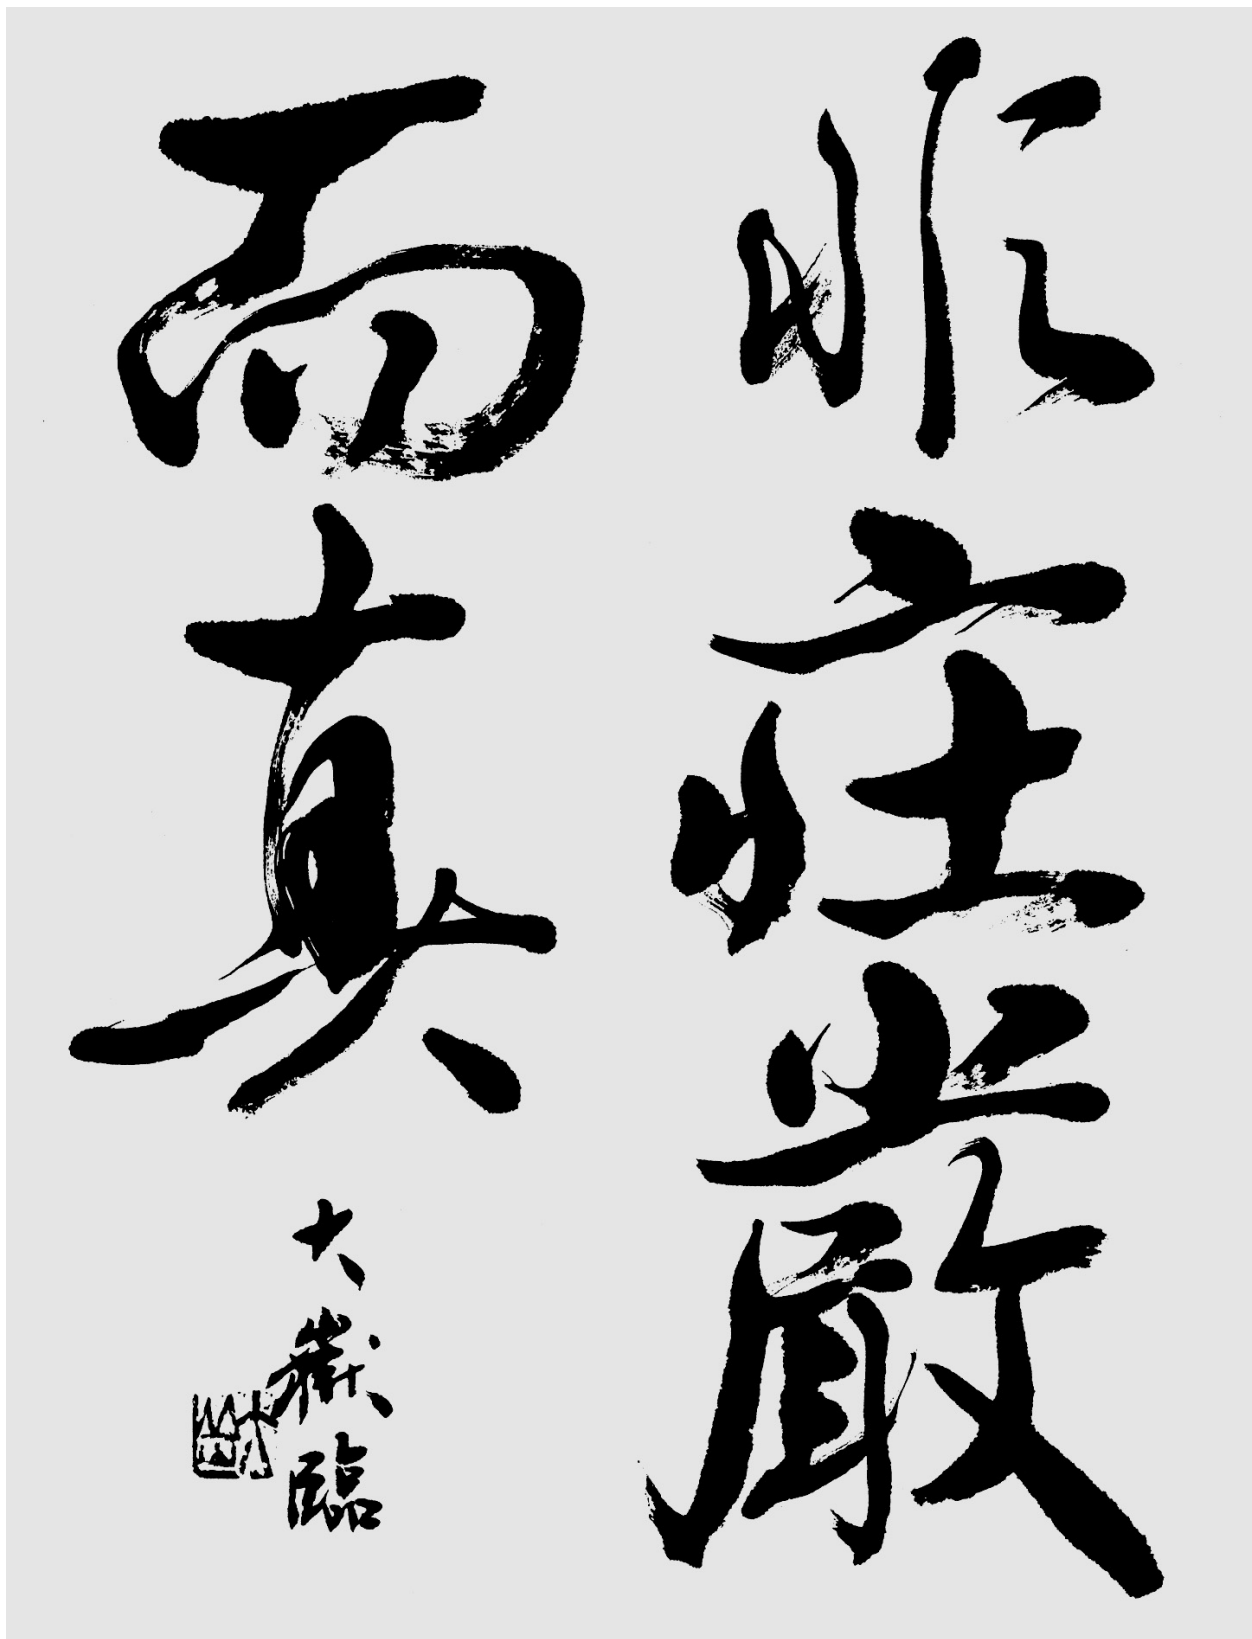 非莊嚴
而真
大嶽臨